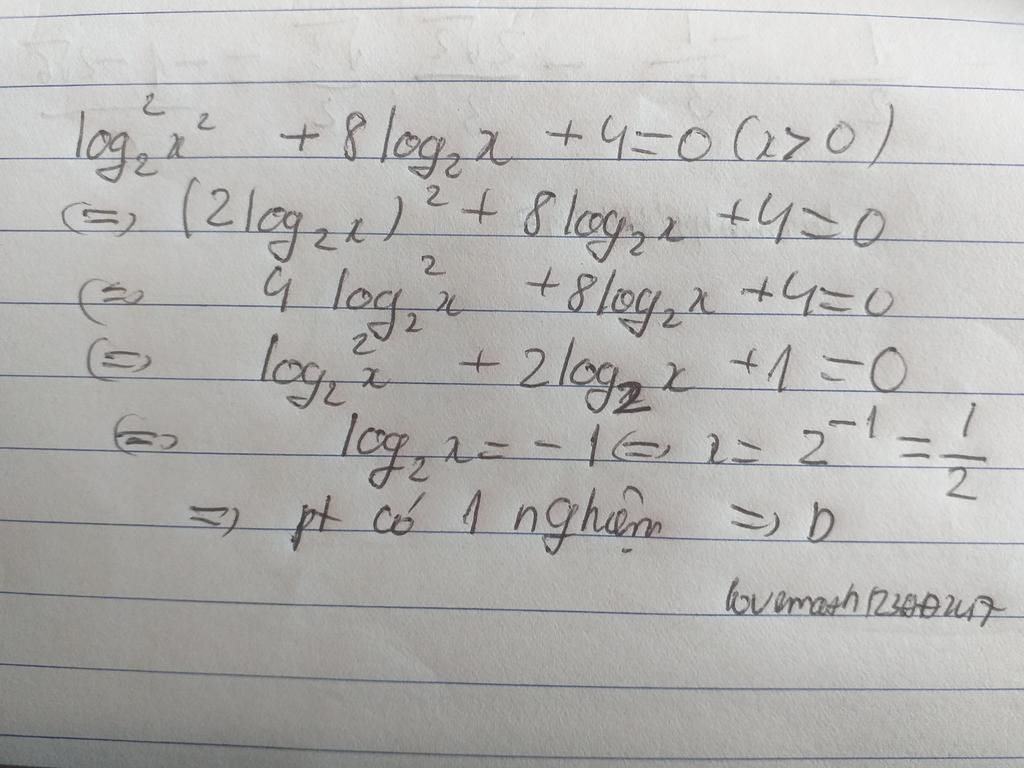 log₂²x² + 8log₂x + 4=0 (x>0)
<=> (2log₂x)² + 8log₂x + 4=0
<=> 4 log₂²x + 8log₂x + 4=0
<=> log₂²x + 2log₂x + 1 =0
<=> log₂x = -1 <=> x = 2⁻¹ = 1/2
=> pt có 1 nghiệm => D